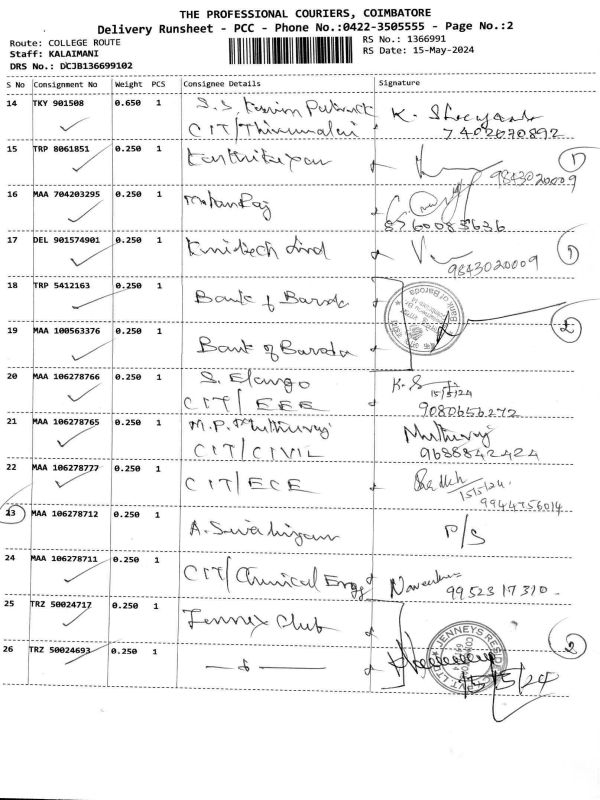 THE PROFESSIONAL COURIERS, COIMBATORE
Delivery Runsheet - PCC - Phone No.:0422-3505555 - Page No.:2
Route: COLLEGE ROUTE
RS No.: 1366991
Staff: KALAIMANI
RS Date: 15-May-2024
DRS No.: DCJB136699102
S No Consignment No Weight PCS Consignee Details Signature
14 TKY 901508 0.650 1 S.S.
CIT/Thirumalai K.
7402670892
15 TRP 8061851 0.250 1 Karthikeyan
9843020009 1
16 MAA 704203295 0.250 1 Mohan Raj
8760083636
17 DEL 901574901 0.250 1
9843020009 1
18 TRP 5412163 0.250 1 Bank of Baroda
2
19 MAA 100563376 0.250 1 Bank of Baroda
20 MAA 106278766 0.250 1 S. Elango K.S
15/5/24
CIT/EEE 9080656272
21 MAA 106278765 0.250 1 M.P. Muthuraj Muthuraj
CIT/CIVIL 9688842424
22 MAA 106278777 0.250 1 CIT/ECE
15/5/24
9944756014
23 MAA 106278712 0.250 1 A. P/S
24 MAA 106278711 0.250 1 CIT/Chemical Engg
9952317310
25 TRZ 50024717 0.250 1 Club
2
26 TRZ 50024693 0.250 1
15/5/24